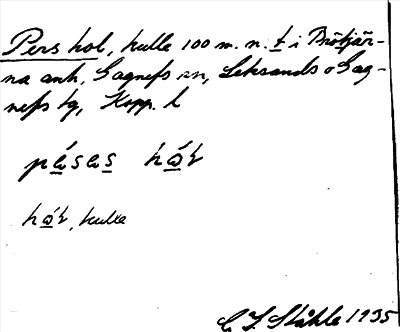 Pers hol, kulle 100 m. n. t. i Bröttjär-
na anh, Gagnefs sn, Leksands o Gag-
nefs tg, Kopp. l
hol, kulle
C. I. Ståhle 1935